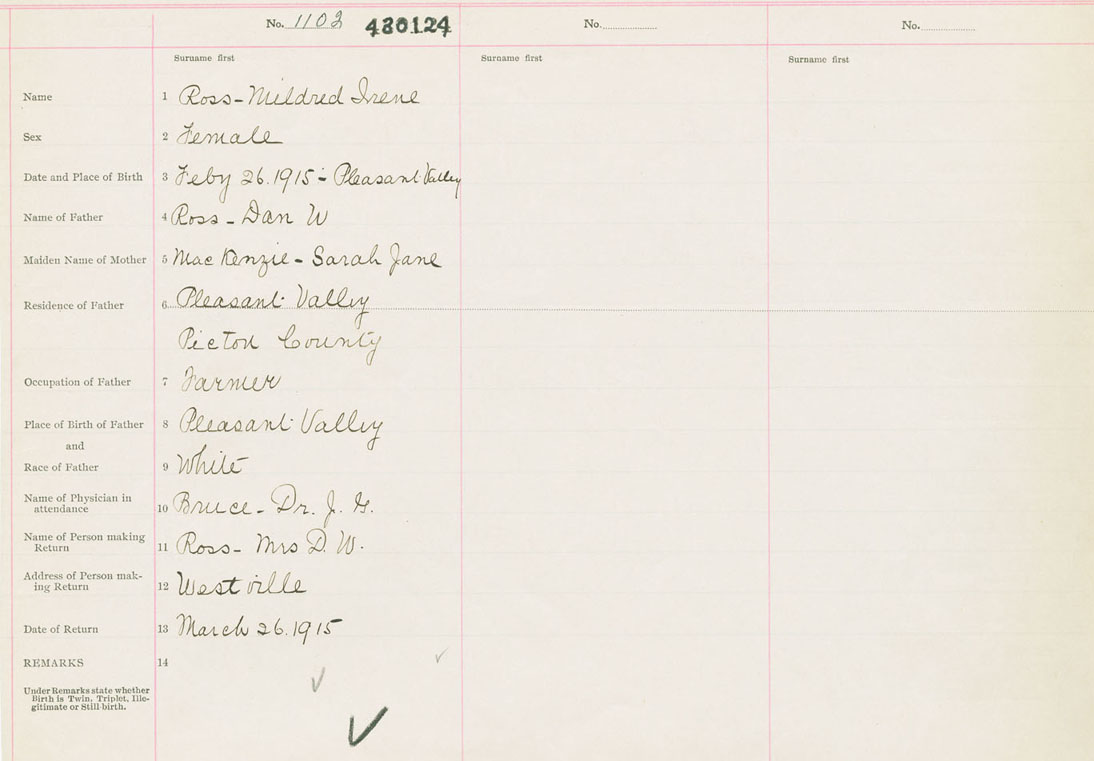 No. 1103 480124 No. No.
Surname first Surname first Surname first
Name 1 Ross - Mildred Irene
Sex 2 Female
Date and Place of Birth 3 Feby 26.1915 - Pleasant Valley
Name of Father 4 Ross - Dan W
Maiden Name of Mother 5 MacKenzie - Sarah Jane
Residence of Father 6 Pleasant Valley
Pictou County
Occupation of Father 7 Farmer
Place of Birth of Father 8 Pleasant Valley
and
Race of Father 9 White
Name of Physician in
attendance 10 Bruce - Dr. J. G.
Name of Person making
Return 11 Ross - Mrs D. W.
Address of Person mak-
ing Return 12 Westville
Date of Return 13 March 26.1915
REMARKS 14
Under Remarks state whether
Birth is Twin, Triplet, Ille-
gitimate or Still-birth.